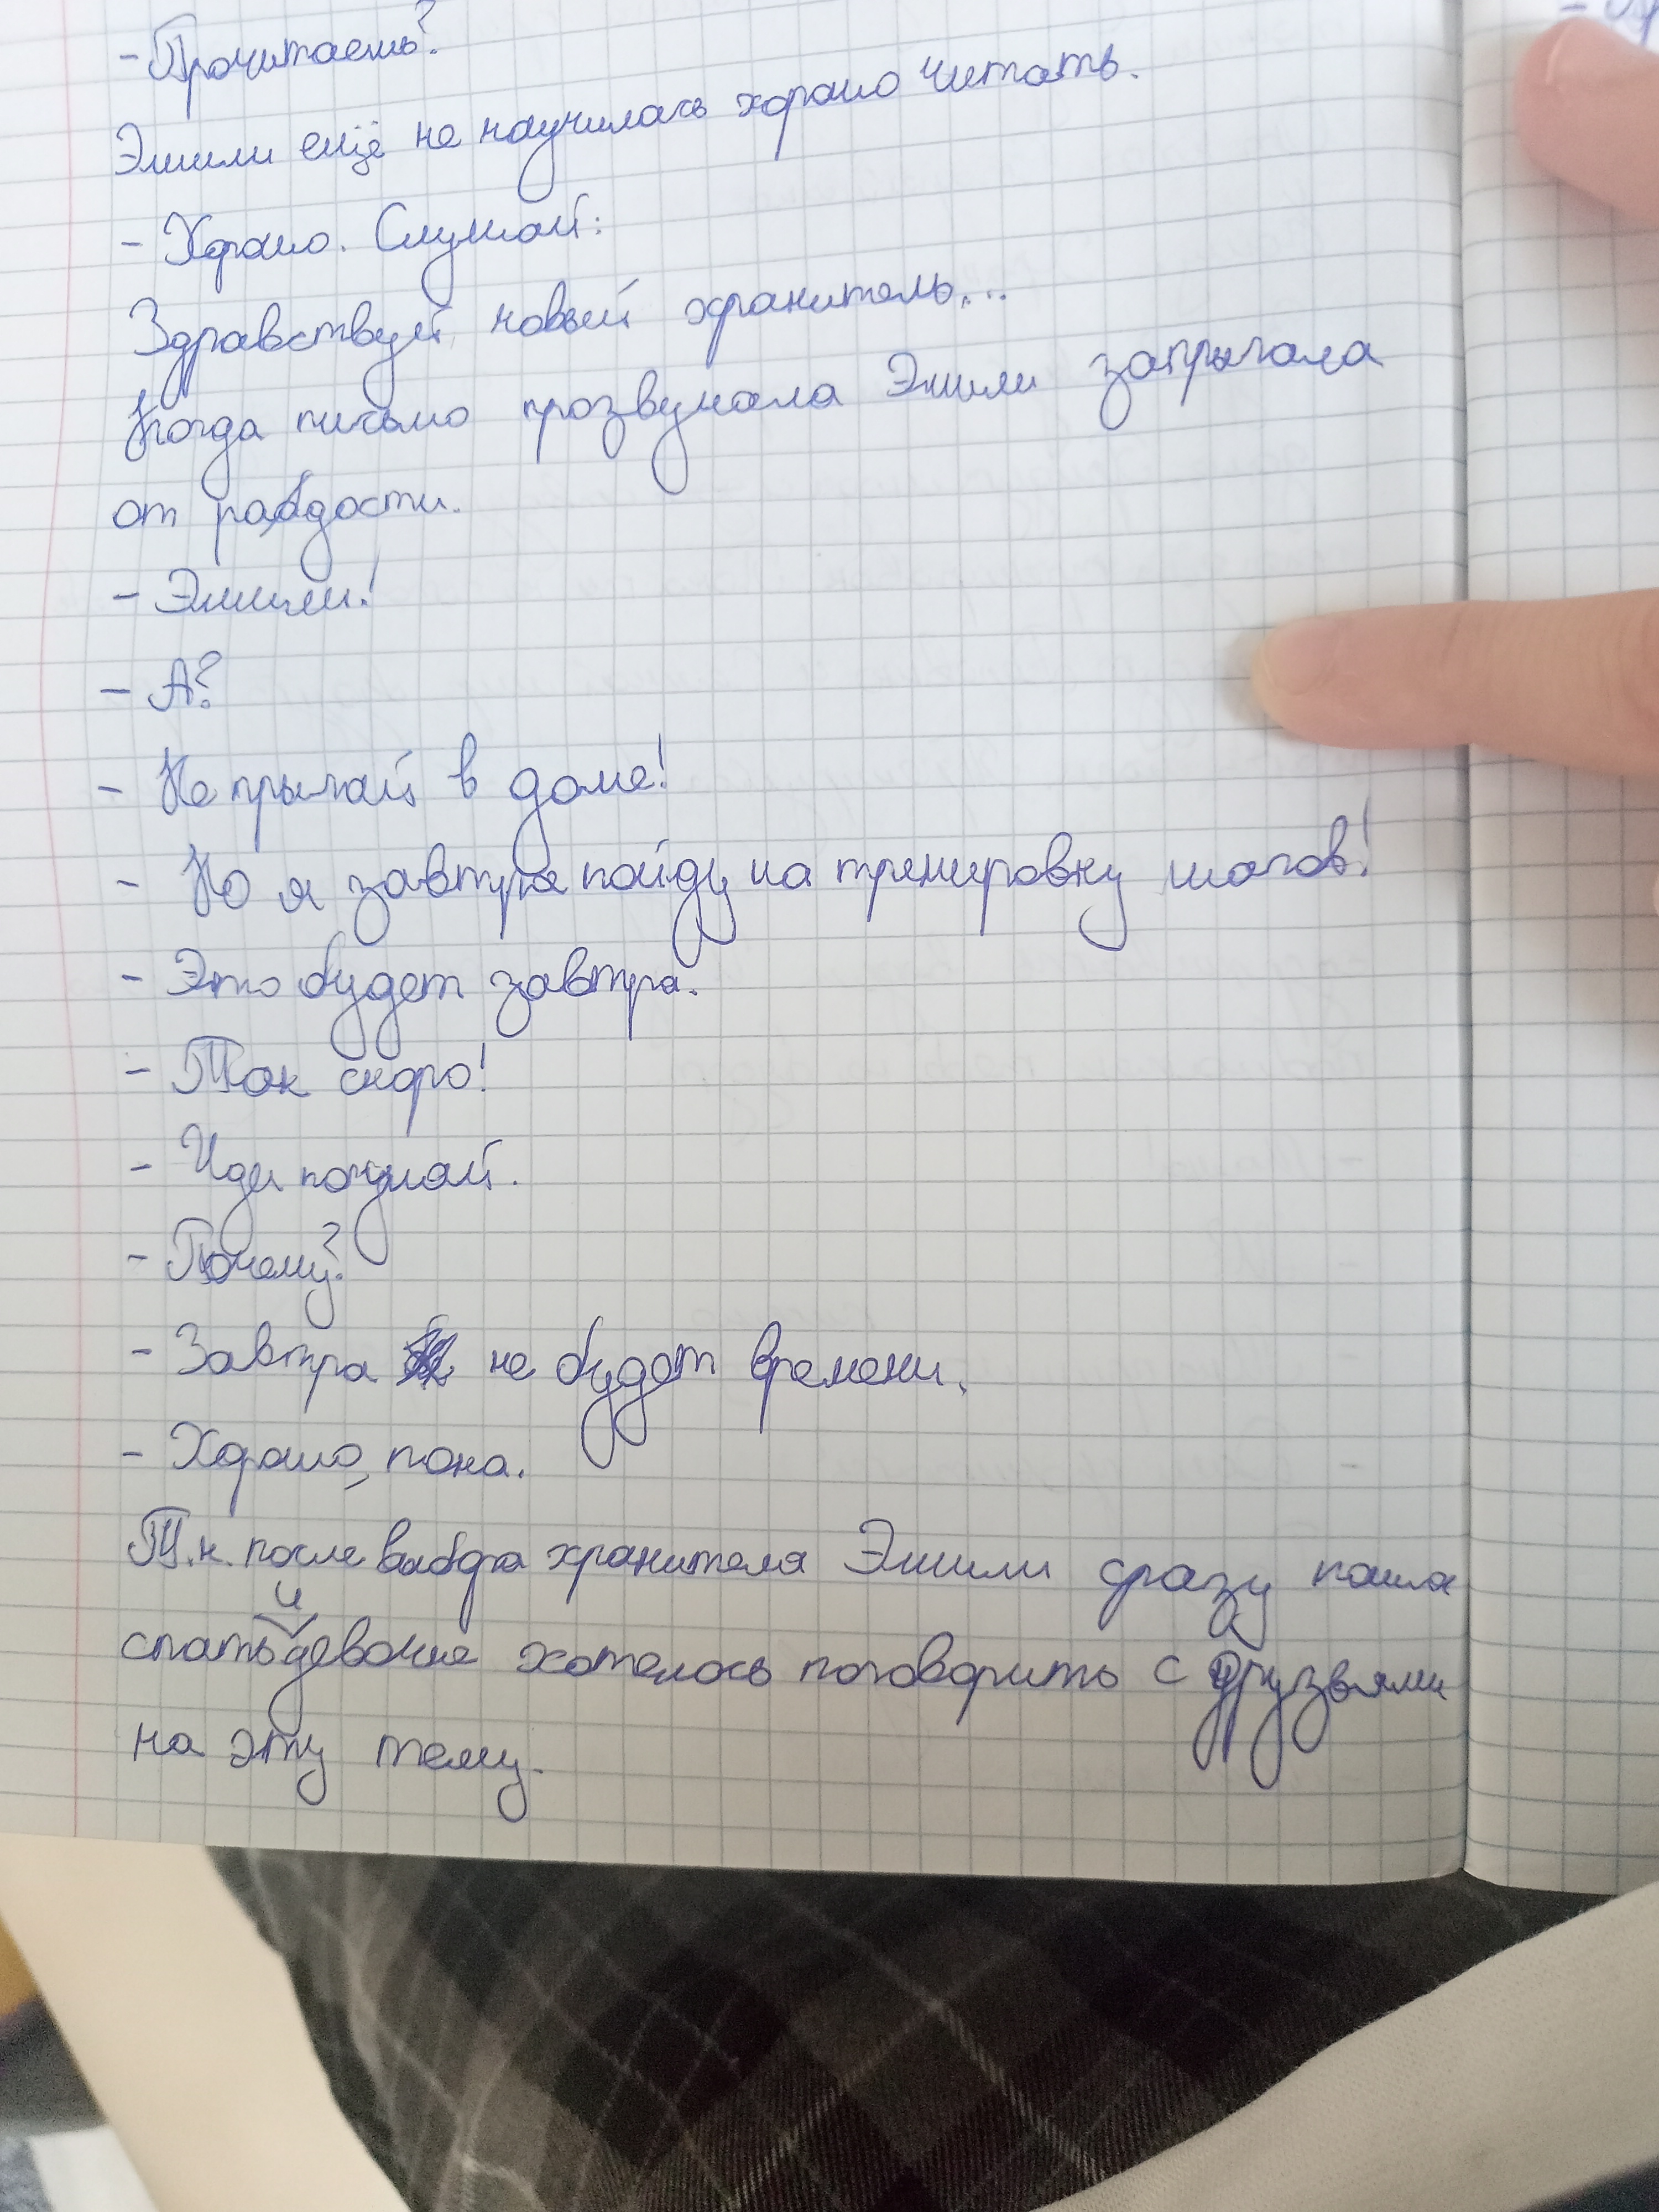 - Прочитаешь?
Эшили ещё не научилась хорошо читать.
- Хорошо. Слушай:
Здравствуй, новый хранитель...
Когда письмо прозвучала Эшили запрыгала
от радости.
- Эшили!
- А?
- Не прыгай в доме!
- Но я завтра пойду на тренировку шагов!
- Это будет завтра.
- Так скоро!
- Иди погуляй.
- Почему?
- Завтра не будет времени.
- Хорошо, пока.
Т.к. после выбора хранителя Эшили сразу пошла
спать и девочке хотелось поговорить с друзьями
на эту тему.